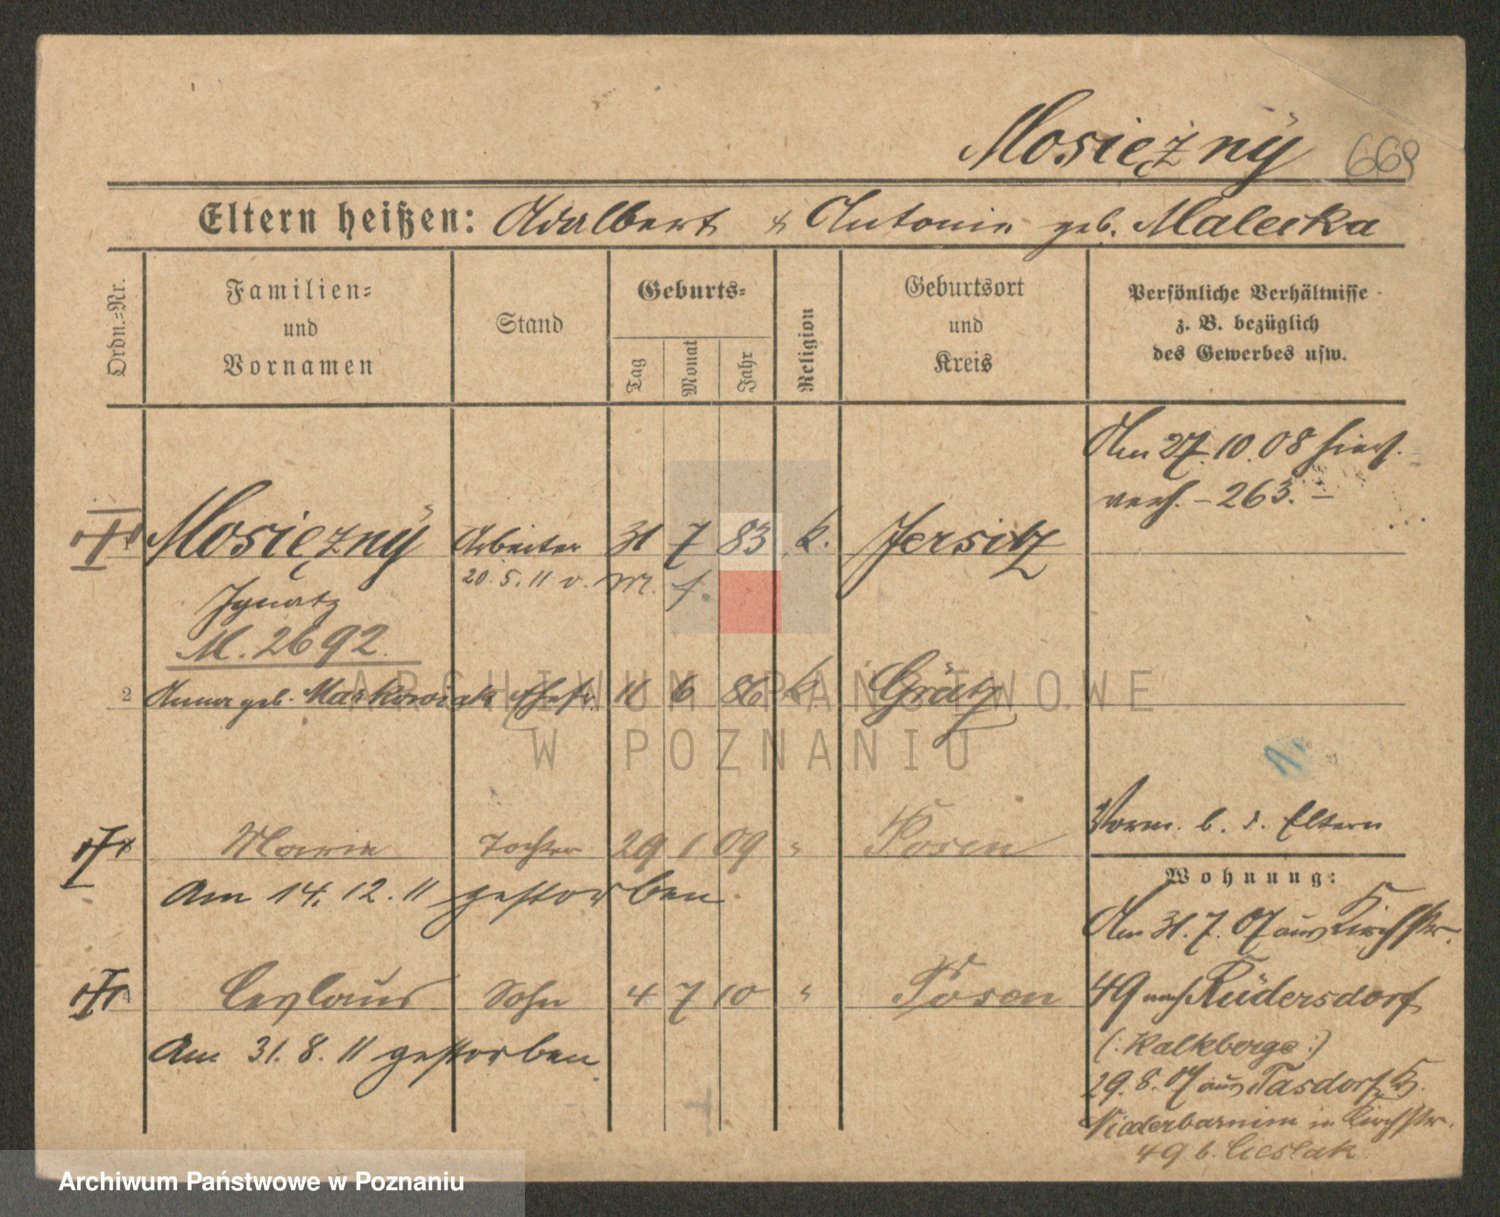 Mosiężny 669
Eltern heißen: Adalbert & Antonie geb. Malecka
Ordn.=Nr.
Familien=
und
Vornamen
Stand
Geburts=
Tag
Monat
Jahr
Religion
Geburtsort
und
Kreis
Persönliche Verhältnisse
z. B. bezüglich
des Gewerbes usw.
Am 27.10.08 hier
verh. – 263. –
Mosiężny Arbeiter 31 7 83 k. Jersitz
Ignatz 20.5.11 v. M.
M. 2692.
2 Anna geb. Markowiak Ehefr. 11 6 86 k. Grätz
Marie Tochter 29 1 09 " Posen
Am 14.12.11 gestorben.
Ceslaus Sohn 4 7 10 " Posen
Am 31.8.11 gestorben.
Vorm. b. d. Eltern
Wohnung:
Am 31.7.07 aus Kirchstr.
49 nach Rüdersdorf
(: Kalkberge :)
29.8.07 aus Tasdorf K.
Niederbarnim in Kirchstr.
49 b. Cieslak
ARCHIWUM PAŃSTWOWE
W POZNANIU
Archiwum Państwowe w Poznaniu